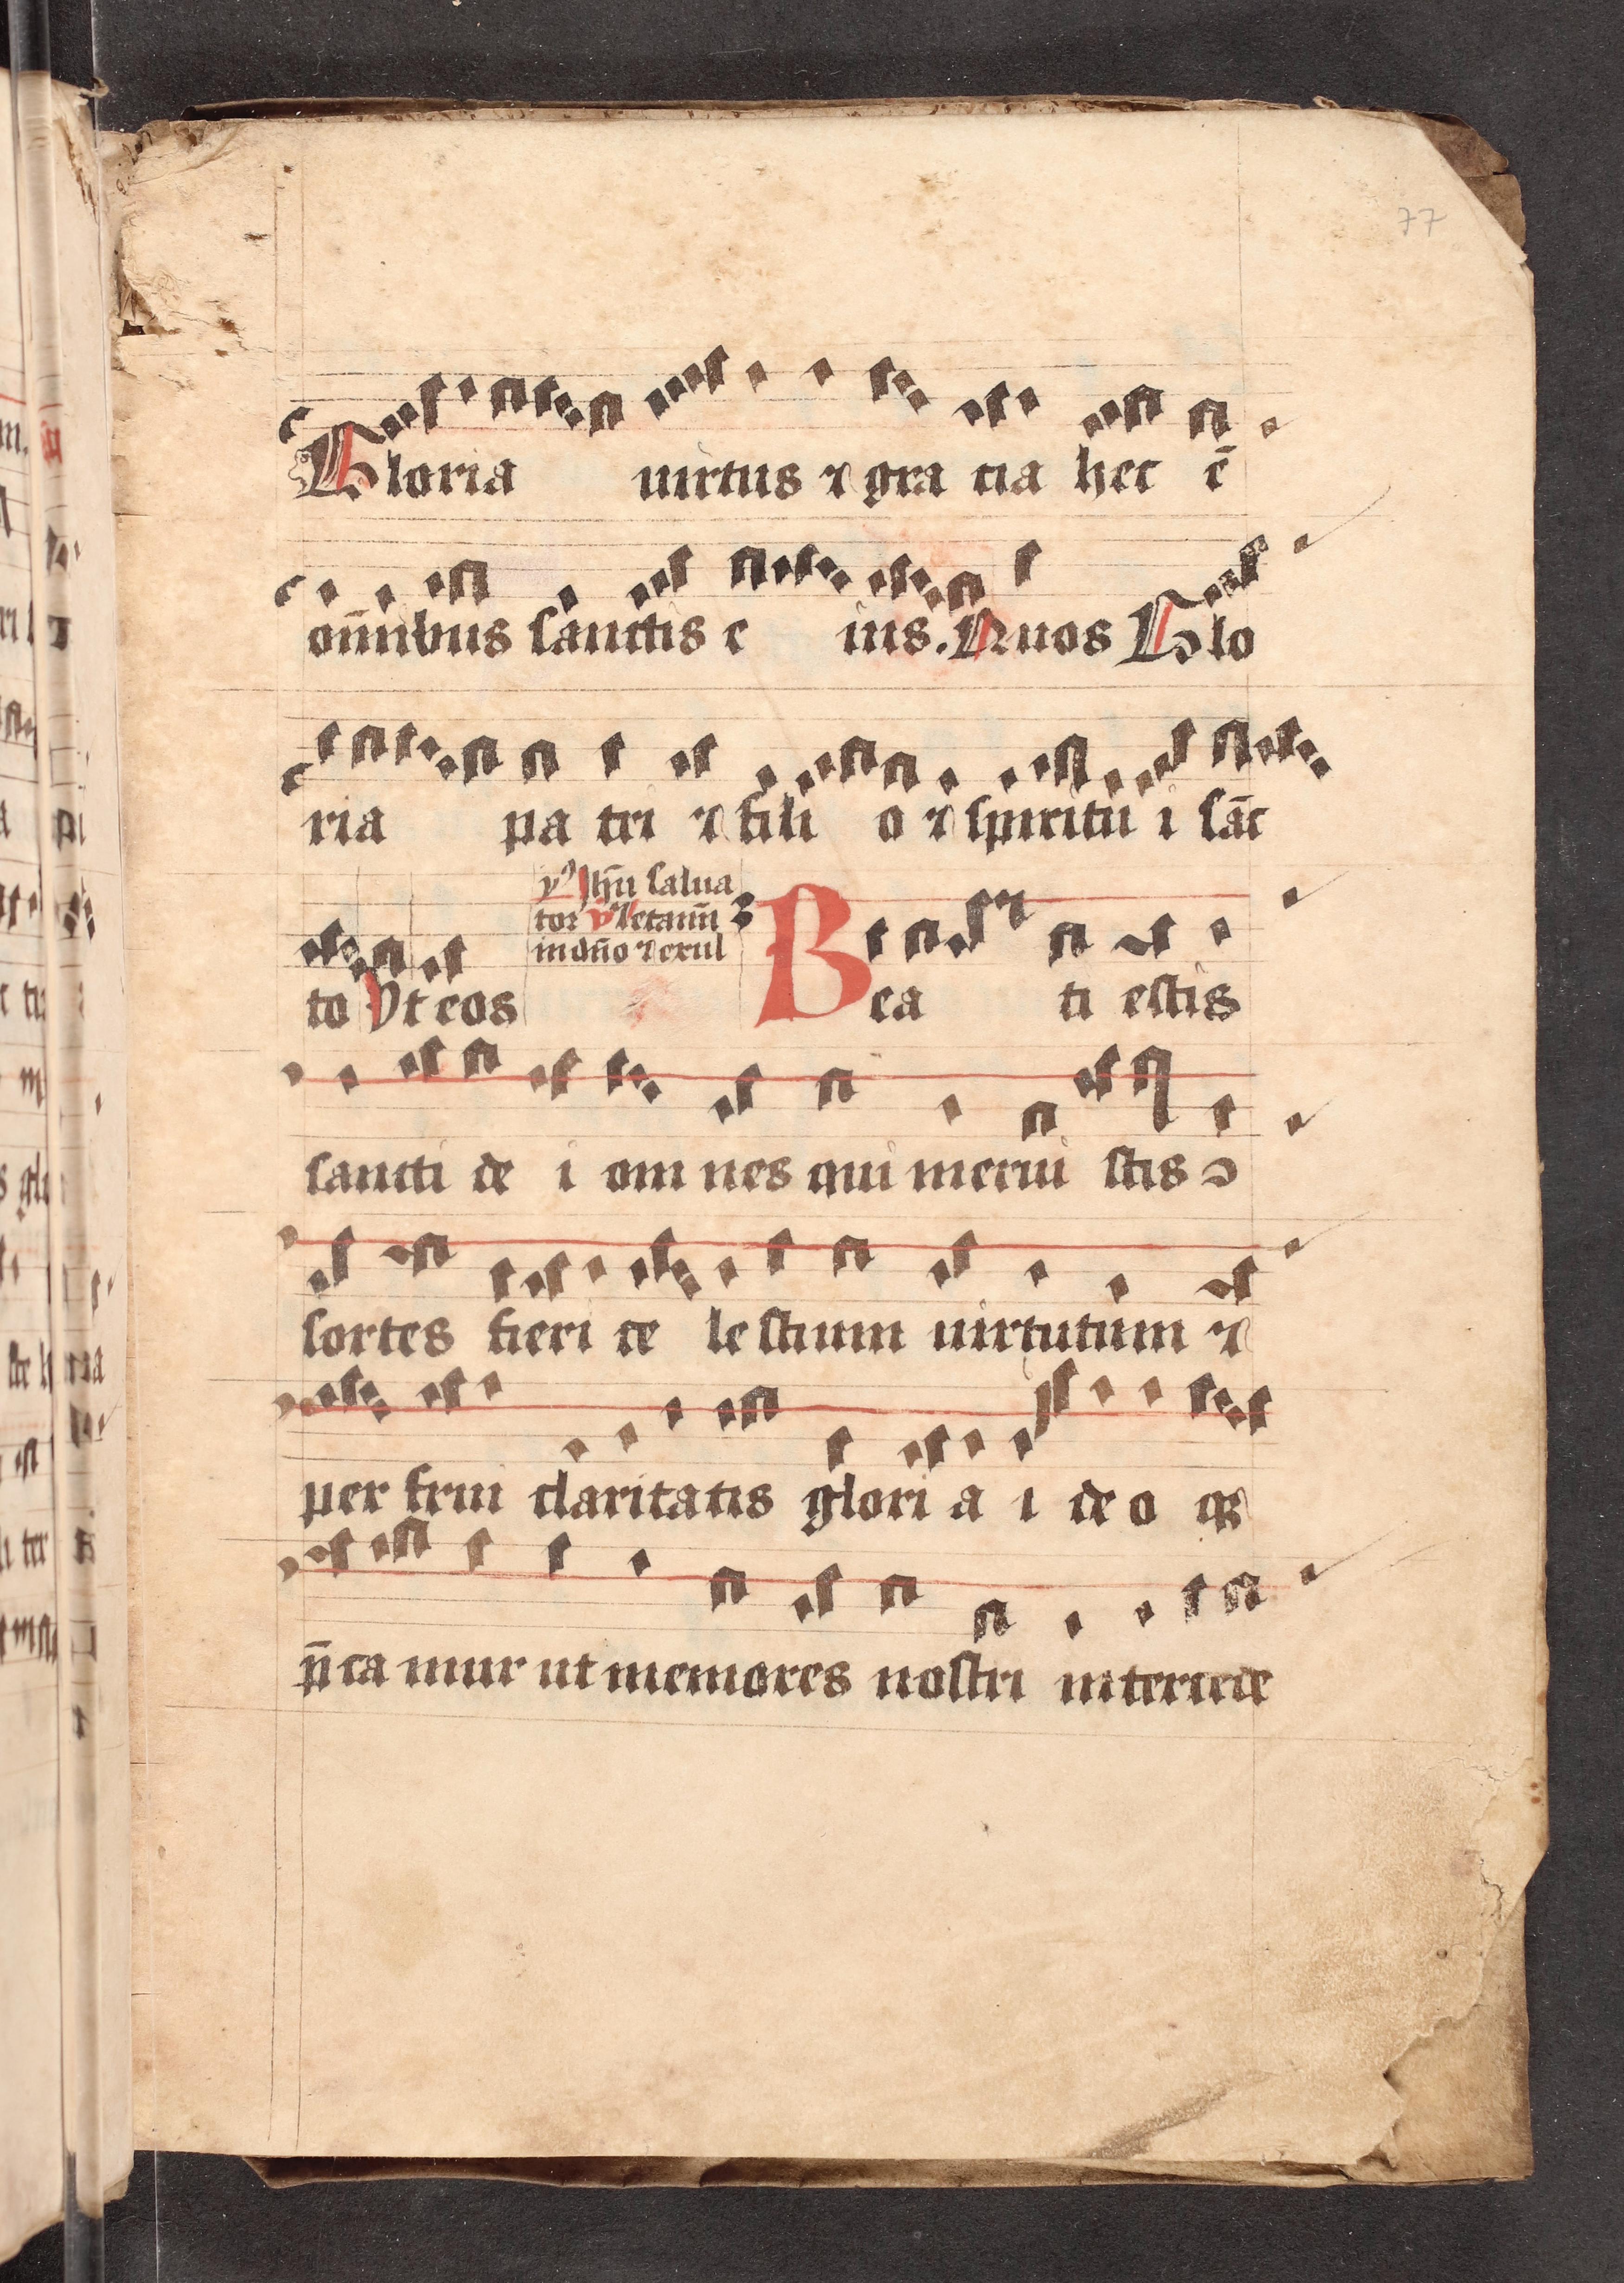 77
Gloria uirtus ⁊ gra cia hec ē
om̄ibus sanctis e ius. Quos Glo
ria pa tri ⁊ fili o ⁊ spiritu i sāc
to Vt eos
yº Jhū salua
tor v Letamī
in dn̄o ⁊ exul
Bea ti estis
sancti de i om nes qui merui stis ↄ
sortes fieri ce le stium uirtutum ⁊
per frui claritatis glori a i de o qꝫ
p̄ca mur ut memores nostri intercede